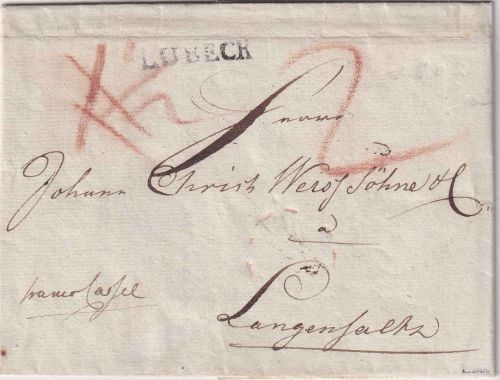 LUBECK
2
Herrn
Johann Christ Weiss Söhne & C
a
franco Cassel
Langensaltz